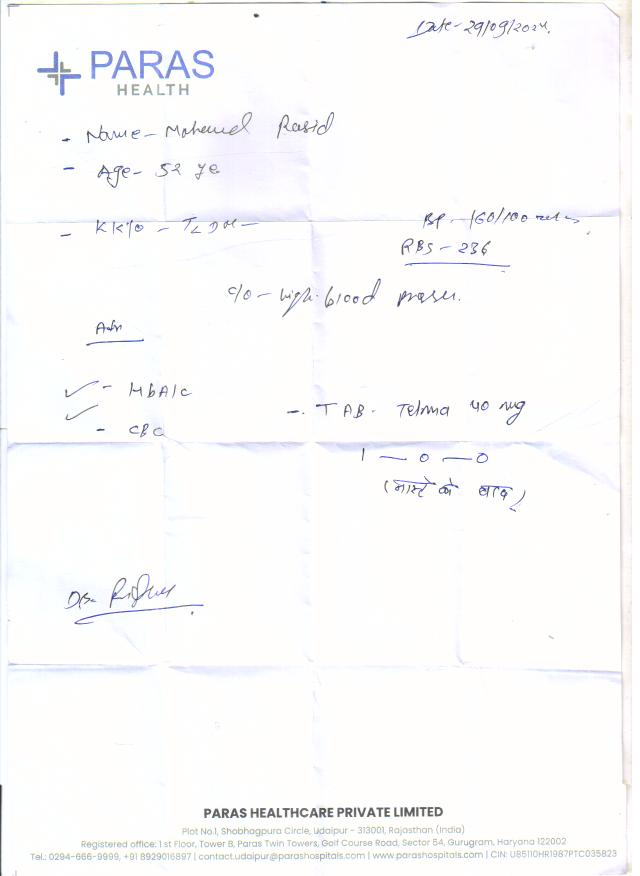 Date - 29/09/2024.
PARAS
HEALTH
- Name - Mohamed Rasid
- Age - 52 ye
- KK/o - T2DM -
BP - 160/100
RBS - 236
c/o - high blood
Adv
- HbA1c
- CBC
- TAB. Telma 40 mg
1 — 0 — 0
(नास्ते के बाद)
Dr.
PARAS HEALTHCARE PRIVATE LIMITED
Plot No.1, Shobhagpura Circle, Udaipur - 313001, Rajasthan (India)
Registered office: 1 st Floor, Tower B, Paras Twin Towers, Golf Course Road, Sector 54, Gurugram, Haryana 122002
Tel.: 0294-666-9999, +91 8929016897 | contact.udaipur@parashospitals.com | www.parashospitals.com | CIN: U85110HR1987PTC035823